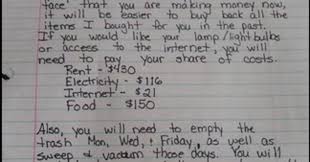 face" that you are making money now,
it will be easier to buy back all the
items I bought for you in the past.
If you would like your lamp/lightbulbs
or access to the internet, you will
need to pay your share of costs.
Rent - $430
Electricity - $116
Internet - $21
Food - $150
Also, you will need to empty the
trash Mon, Wed, & Friday, as well as
sweep & vacuum those days. You will